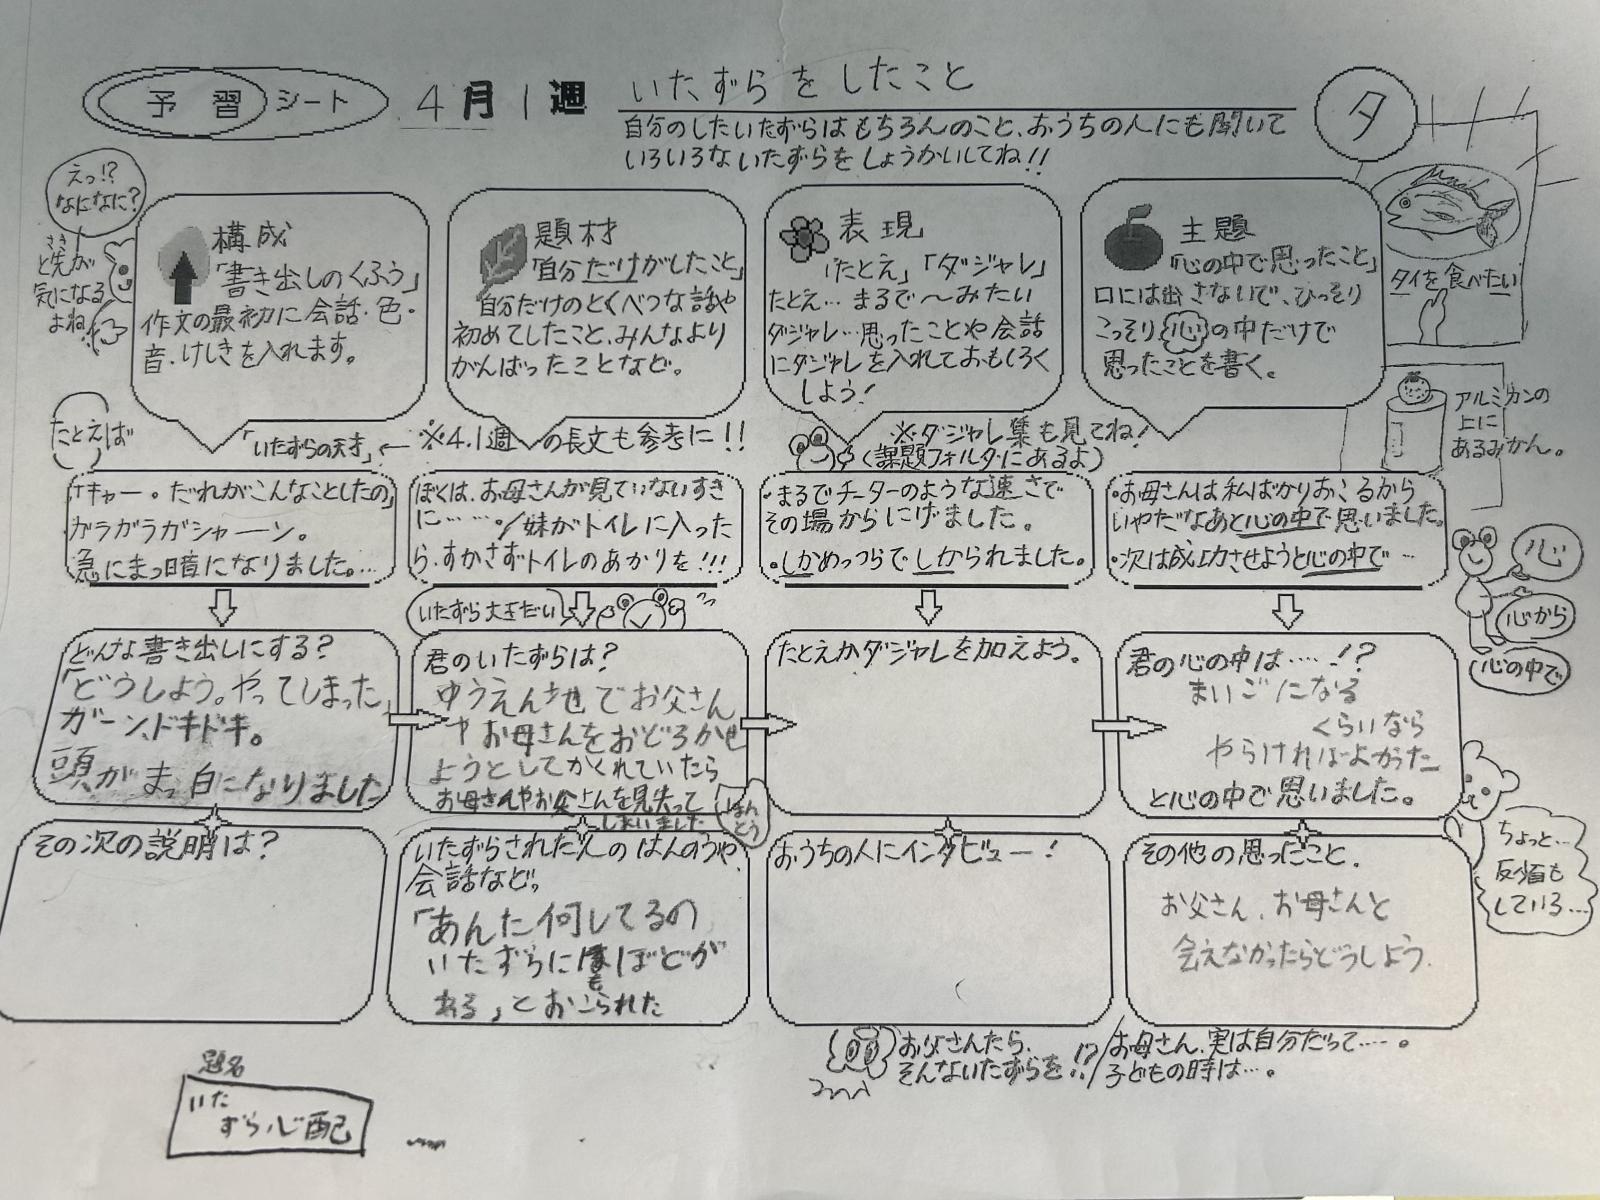 予習シート 4月1週 いたずらをしたこと
自分のしたいたずらはもちろんのこと、おうちの人にも聞いて
いろいろないたずらをしょうかいしてね!!
タ
えっ!?
なになに?
さき
と先が
気になる
よね
構成
「書き出しのくふう」
作文の最初に会話・色・
音、けしきを入れます。
題材
「自分だけがしたこと」
自分だけのとくべつな話や
初めてしたこと、みんなより
がんばったことなど。
表現
「たとえ」「ダジャレ」
たとえ…まるで〜みたい
ダジャレ…思ったことや会話
にダジャレを入れておもしろく
しよう!
主題
「心の中で思ったこと」
口には出さないで、ひっそり
こっそり心の中だけで
思ったことを書く。
タイを食べたい
アルミカンの
上に
あるみかん。
たとえば
「いたずらの天才」← ※4.1週の長文も参考に!!
※ダジャレ集も見てね!
(課題フォルダにあるよ)
「キャー。だれがこんなことしたの」
ガラガラガシャーン。
急にまっ暗になりました。…
ぼくは、お母さんが見ていないすき
に……。/妹がトイレに入った
ら、すかさずトイレのあかりを!!!
・まるでチーターのような速さで
その場からにげました。
・しかめっつらでしかられました。
・お母さんは私ばかりおこるから
いやだなあと心の中で思いました。
・次は成功させようと心の中で…
心
心から
心の中で
いたずら大王だい
どんな書き出しにする?
「どうしよう。やってしまった」
ガーン、ドキドキ。
頭がまっ白になりました
君のいたずらは?
ゆうえん地でお父さん
やお母さんをおどろかせ
ようとしてかくれていたら
お母さんやお父さんを見失って
しまいました
たとえかダジャレを加えよう。
君の心の中は……!?
まいごになる
くらいなら
やらければよかった
と心の中で思いました。
ほん
とう
その次の説明は?
いたずらされた人のはんのうや、
会話など。
「あんた何してるの
いたずらにもほどが
ある」とおこられた
おうちの人にインタビュー!
その他の思ったこと。
お父さん、お母さんと
会えなかったらどうしよう。
ちょっと…
反省も
している…
お父さんたら、
そんないたずらを!?
お母さん、実は自分だって……。
子どもの時は…。
題名
いた
ずら心配